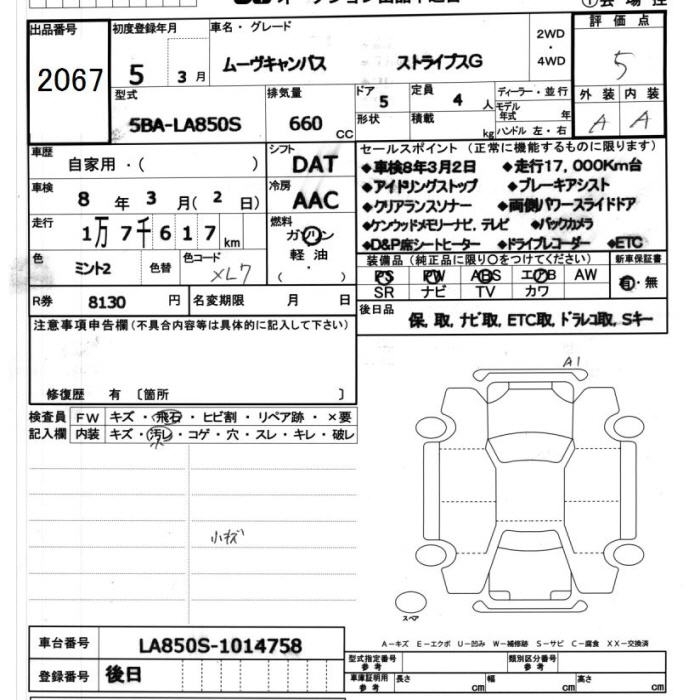 出品番号
2067
初度登録年月
5 3月
車名・グレード
ムーヴキャンバス ストライプスG
2WD
・
4WD
評価点
5
外装 内装
A A
型式
5BA-LA850S
排気量
660 CC
ドア
5
定員
4 人
ディーラー・並行
モデル
年式 年
形状
積載
kg
ハンドル 左・右
車歴
自家用・( )
シフト
DAT
車検
8年 3月(2日)
冷房
AAC
走行
1万7千617km
燃料
ガソリン
軽油
( )
色
ミント2
色替
色コード
XL7
R券 8130 円
名変期限 月 日
セールスポイント (正常に機能するものに限ります)
◆車検8年3月2日 ◆走行17,000Km台
◆アイドリングストップ ◆ブレーキアシスト
◆クリアランスソナー ◆両側パワースライドドア
◆ケンウッドメモリーナビ,テレビ ◆バックカメラ
◆D&P席シートヒーター ◆ドライブレコーダー ◆ETC
装備品(純正品に限り○をつけてください)
新車保証書
PS PW ABS エアB AW
SR ナビ TV カワ
有・無
後日品
保,取,ナビ取,ETC取,ドラレコ取,Sキー
注意事項申告欄(不具合内容等は具体的に記入して下さい)
修復歴 有 〔箇所 〕
検査員
記入欄
FW キズ・飛石・ヒビ割・リペア跡・×要
内装 キズ・汚レ・コゲ・穴・スレ・キレ・破レ
小キズ
A1
スペア
A-キズ E-エクボ U-凹み W-補修跡 S-サビ C-腐食 XX-交換済
車台番号
LA850S-1014758
登録番号
後日
型式指定番号
参考
類別区分番号
参考
車庫証明用
参考
長さ cm 幅 cm 高さ cm